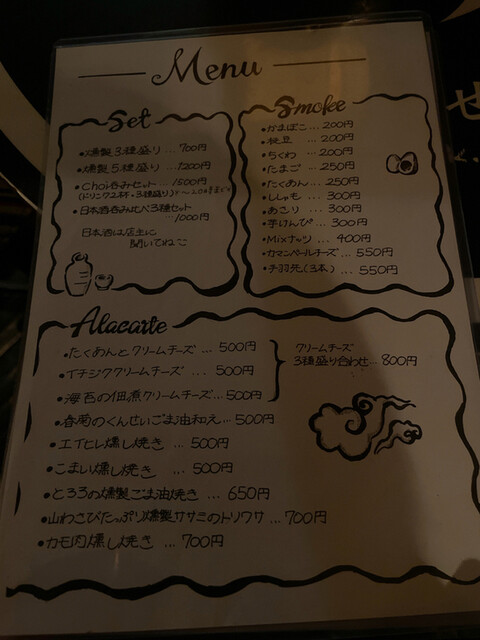 Menu
Set
・燻製3種盛り…700円
・燻製5種盛り…1200円
・Choi呑みセット…1500円
(ドリンク2杯・3種盛り)
・日本酒呑み比べ3種セット
…1000円
日本酒は店主に
聞いてねこ
Smoke
・かまぼこ…200円
・枝豆…200円
・ちくわ…200円
・たまご…250円
・たくあん…250円
・ししゃも…300円
・あこり…300円
・芋けんぴ…300円
・Mixナッツ…400円
・カマンベールチーズ…550円
・手羽先(3本)…550円
Alacarte
・たくあんとクリームチーズ…500円
・イチジククリームチーズ…500円
・海苔の佃煮クリームチーズ…500円
クリームチーズ
3種盛り合わせ…800円
・春菊のくんせいごま油和え…500円
・エイヒレ燻し焼き…500円
・こまい燻し焼き…500円
・とろろの燻製ごま油焼き…650円
・山わさびたっぷり燻製ササミのトリワサ…700円
・カモ肉燻し焼き…700円
せ